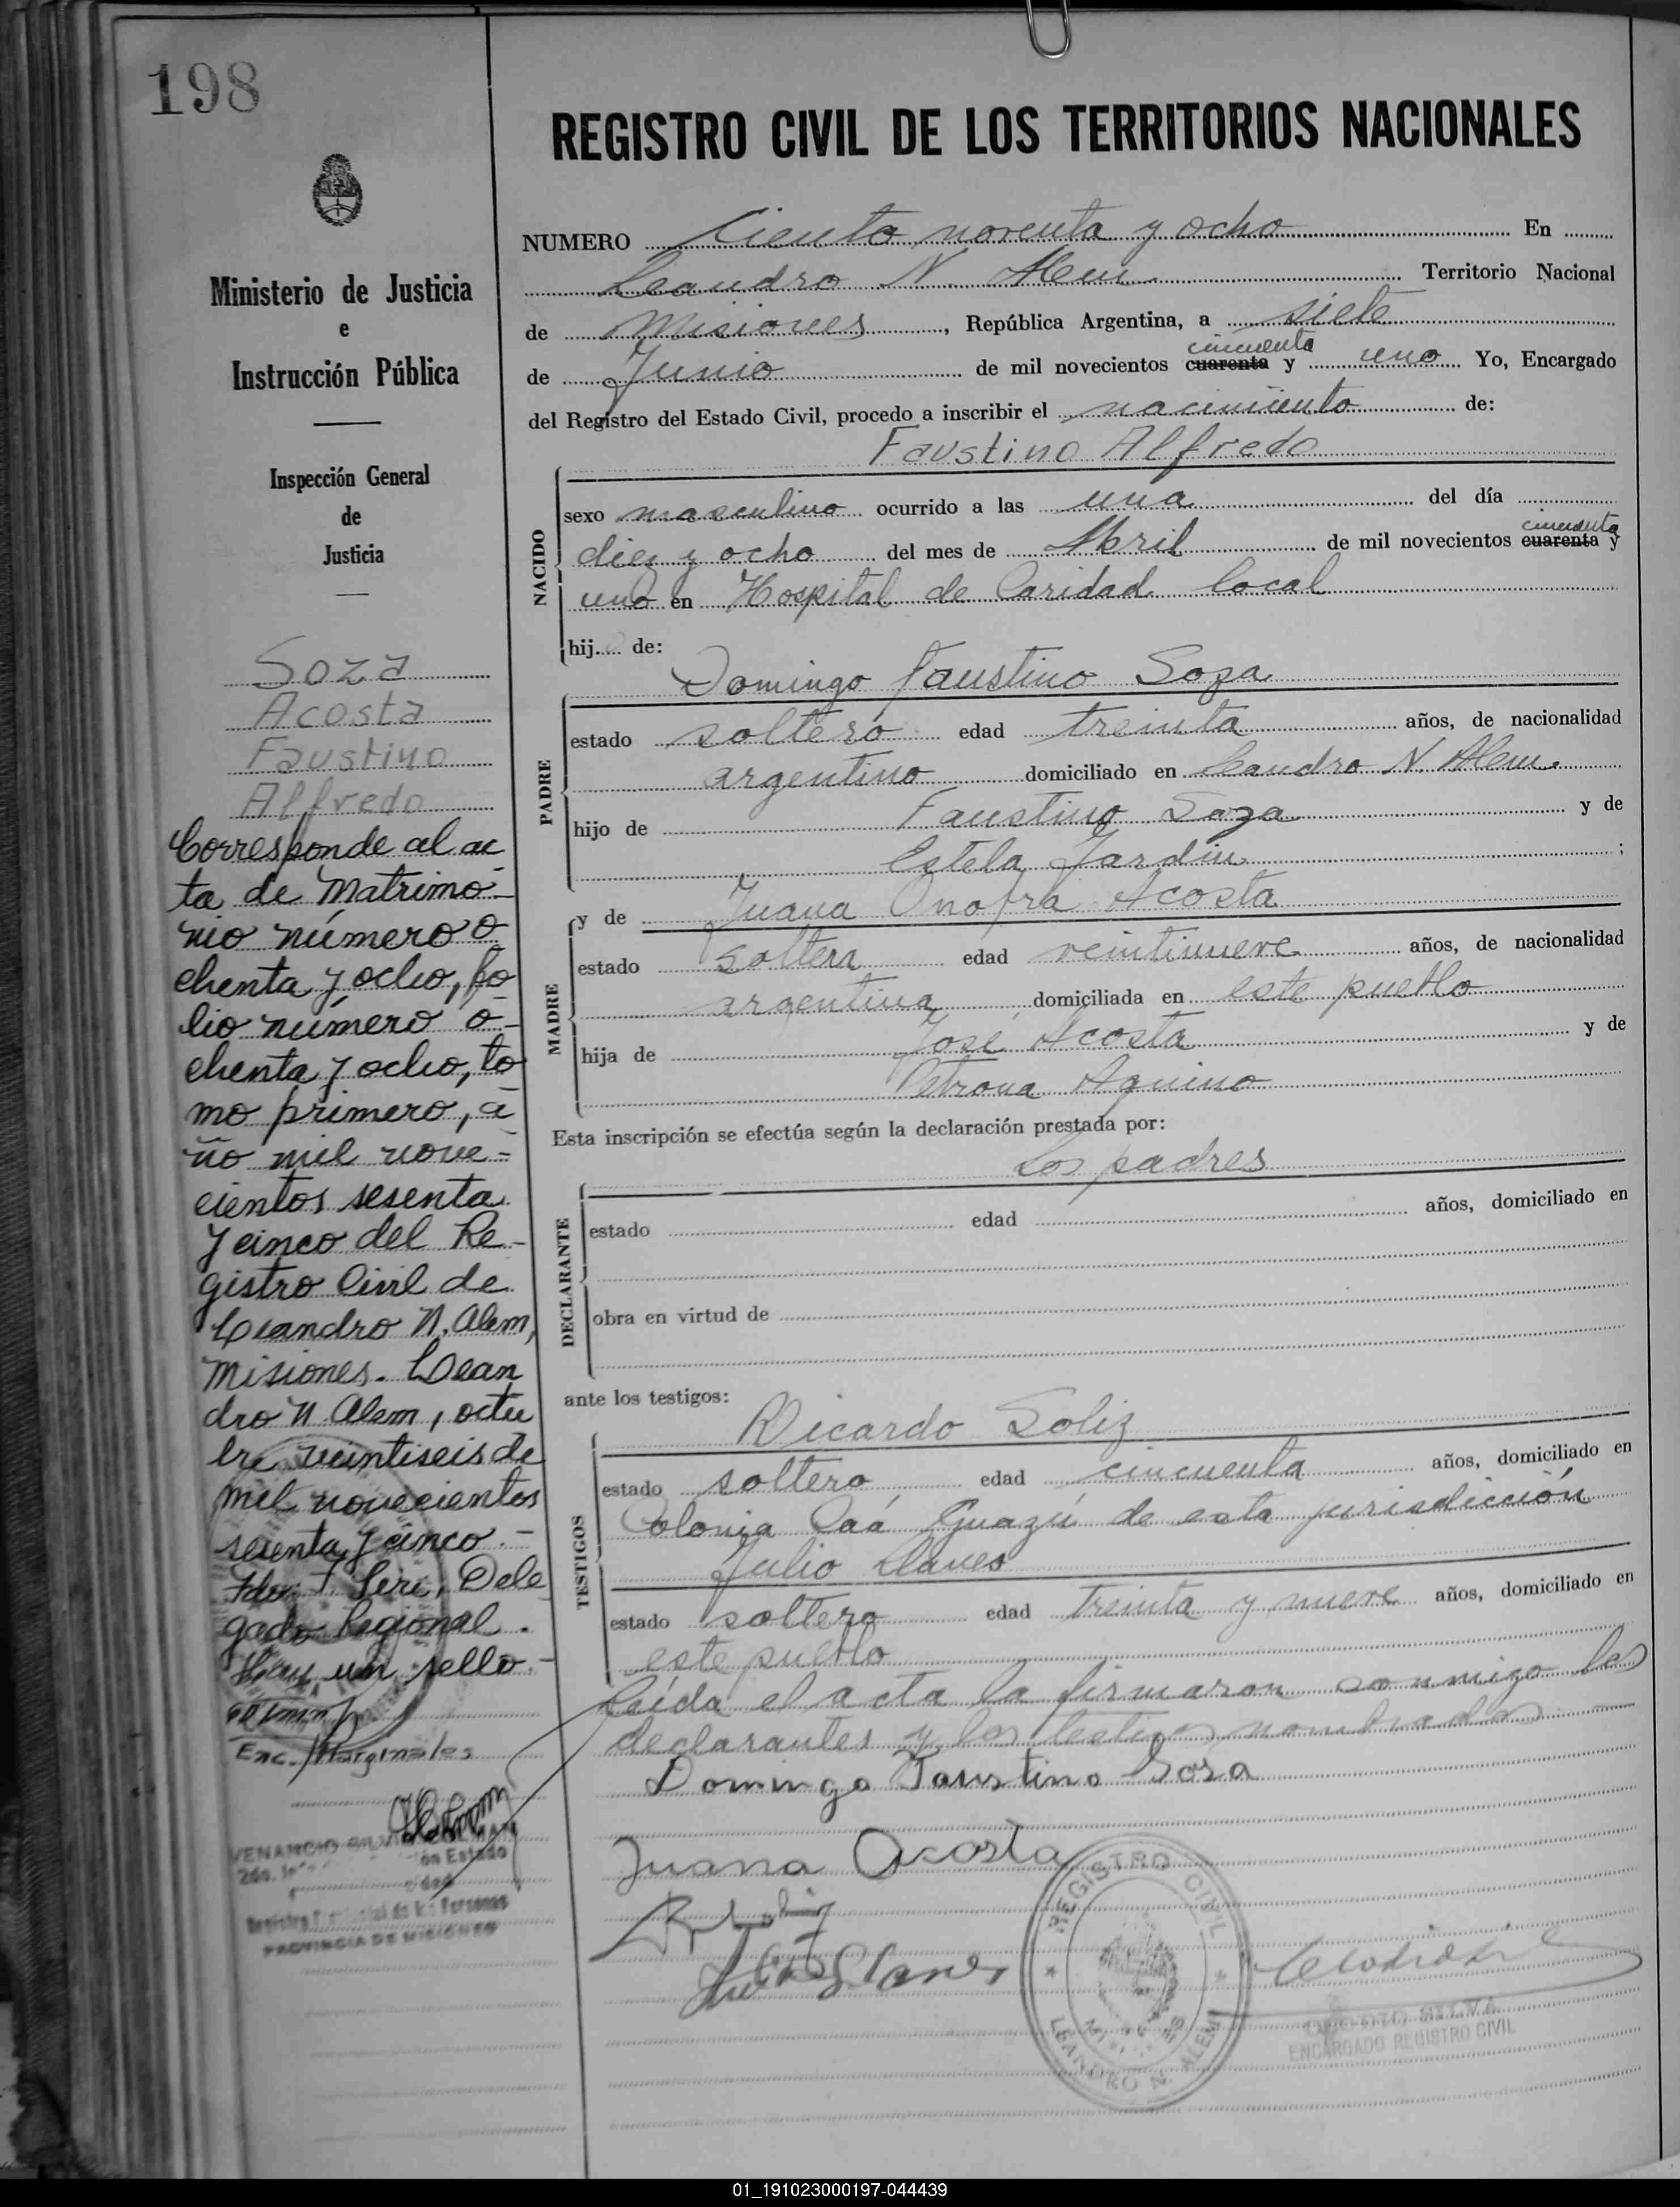 198
Ministerio de Justicia
e
Instrucción Pública
Inspección General
de
Justicia
Soza
Acosta
Faustino
Alfredo
Corresponde al ac
ta de Matrimo-
nio número o
chenta y ocho, fo
lio número o-
chenta y ocho, to
mo primero, a-
ño mil nove-
cientos sesenta
y cinco del Re-
gistro Civil de
Leandro N. Alem,
Misiones. Lean
dro N. Alem, octu
bre veintiseis de
mil novecientos
sesenta y cinco.-
Fdo: Delegado
gado Regional.
Hay un sello.-
Enc. Marginales
VENANCIO
2do.
ón Estado
Registro de las Personas
PROVINCIA DE MISIONES
REGISTRO CIVIL DE LOS TERRITORIOS NACIONALES
NUMERO Ciento noventa y ocho En
Leandro N. Alem Territorio Nacional
de Misiones, República Argentina, a siete
cincuenta
de Junio de mil novecientos cuarenta y uno Yo, Encargado
del Registro del Estado Civil, procedo a inscribir el nacimiento de:
Faustino Alfredo
NACIDO
sexo masculino ocurrido a las una del día
cincuenta
diez y ocho del mes de Abril de mil novecientos cuarenta y
uno en Hospital de Caridad local
hijo de:
Domingo Faustino Soza
PADRE
estado soltero edad treinta años, de nacionalidad
argentino domiciliado en Leandro N. Alem.
hijo de Faustino Soza y de
Estela Jardin ;
y de Juana Onofra Acosta
MADRE
estado soltera edad veintinueve años, de nacionalidad
argentina domiciliada en este pueblo
hija de José Acosta y de
Petrona Aquino
Esta inscripción se efectúa según la declaración prestada por:
Los padres
DECLARANTE
estado edad años, domiciliado en
obra en virtud de
ante los testigos:
Ricardo Soliz
TESTIGOS
estado soltero edad cincuenta años, domiciliado en
Colonia Caá Guazú de esta jurisdicción
Julio Llanes
estado soltero edad treinta y nueve años, domiciliado en
este pueblo
Leída el acta la firmaron conmigo los
declarantes y los testigos nombrados
Domingo Faustino Sosa
Juana Acosta
Julio Llanes
REGISTRO CIVIL
MISIONES
LEANDRO N. ALEM
SILVA
ENCARGADO REGISTRO CIVIL
01_191023000197-044439